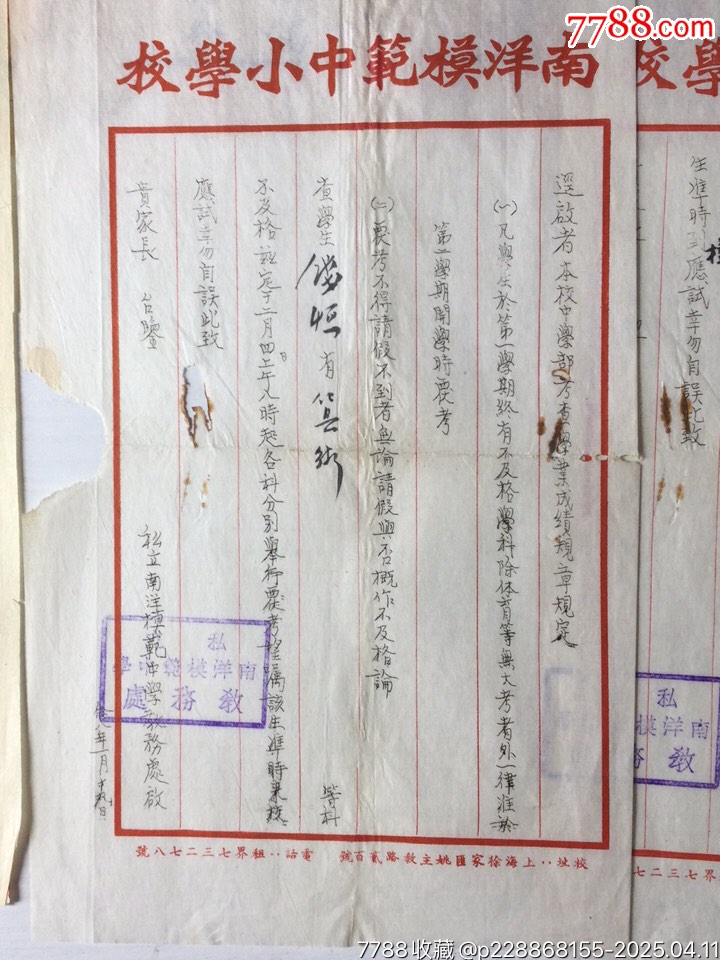 7788.com
南洋模範中小學校
逕啟者本校中學部考查學業成績規章規定
(一)凡學生於第一學期終有不及格學科除体育等無大考者外一律准於
第二學期開學時覆考
(二)覆考不得請假不到者無論請假與否概作不及格論
查學生 恒有算術 等科
不及格玆定于二月四日上午八時起各科分別舉行覆考望囑該生準時来校
應試幸勿自誤此致
貴家長 台鑒
私立南洋模範中學教務處啟
八年一月 日
私
南洋模範中學
教務處
校址：上海徐家匯姚主教路貳百號 電話：租界七三二七八號
學校
生準時到應試幸勿自誤此致
私
南洋模
教務
界七三二七
7788收藏 @p228868155-2025.04.11